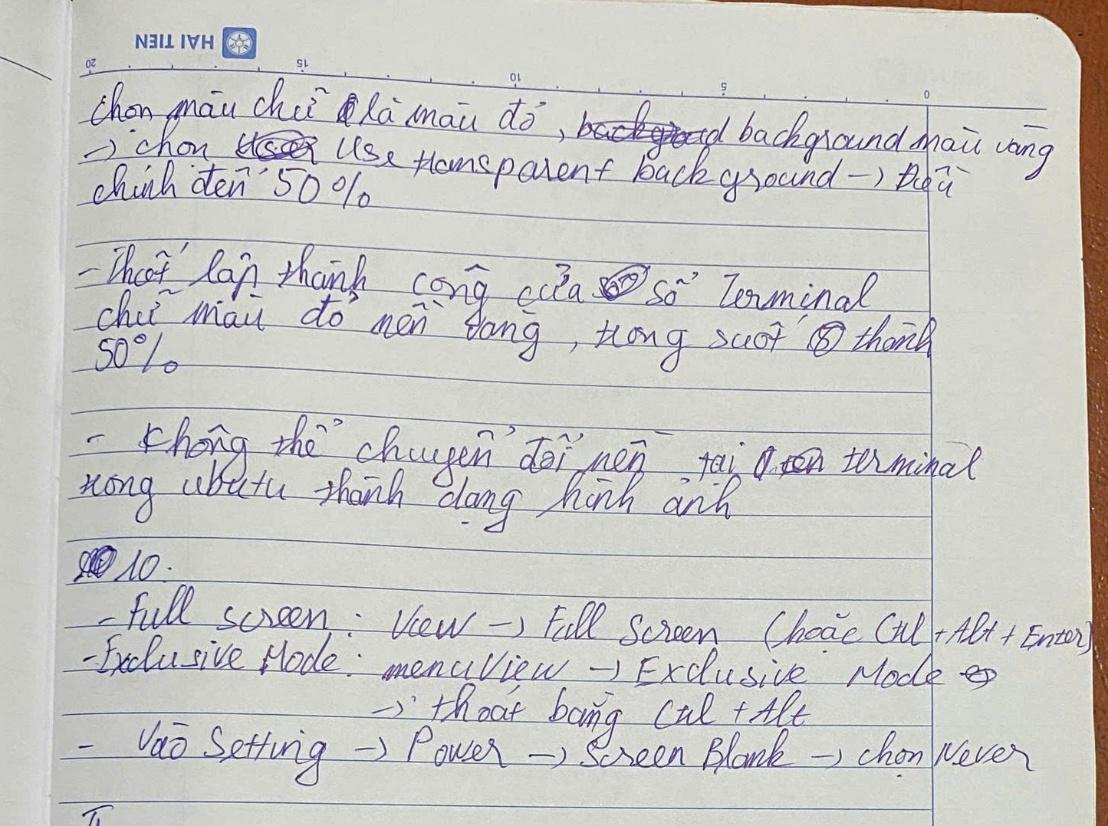 HẢI TIẾN
20 15 10 5 0
chọn màu chữ là màu đỏ, background màu vàng
-> chọn Use transparent background -> Điều
chỉnh đến 50%
- Thiết lập thành công cửa sổ Terminal
chữ màu đỏ nền vàng, trong suốt thành
50%
- Không thể chuyển đổi nền tại terminal
trong ubutu thành dạng hình ảnh
10.
- Full screen: View -> Full Screen (hoặc Ctrl + Alt + Enter)
- Exclusive Mode: menu View -> Exclusive Mode
-> thoát bằng Ctrl + Alt
- Vào Setting -> Power -> Screen Blank -> chọn Never